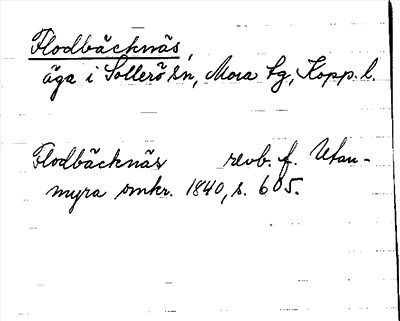 Flodbäcknäs,
äga i Sollerö sn, Mora tg, Kopp. l.
Flodbäcknäs revb. f. Utan-
myra omkr. 1840, s. 605.